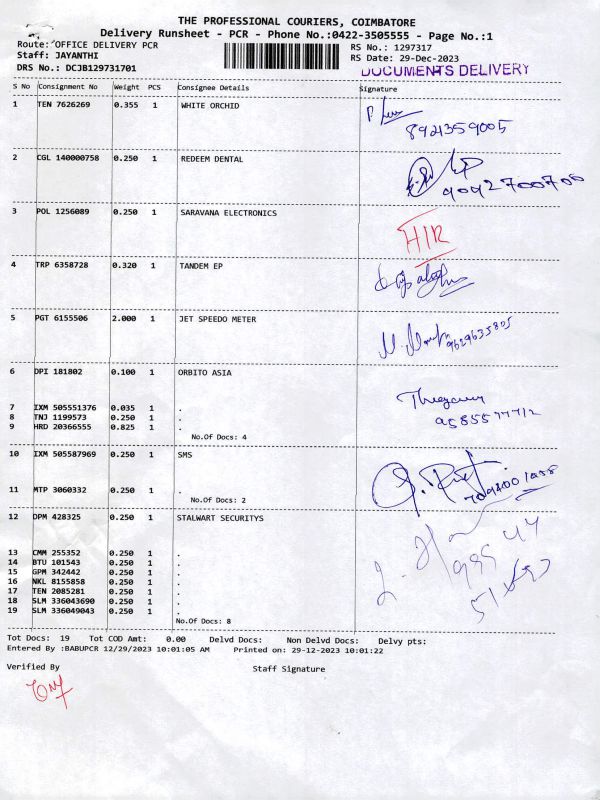 THE PROFESSIONAL COURIERS, COIMBATORE
Delivery Runsheet - PCR - Phone No.:0422-3505555 - Page No.:1
Route: OFFICE DELIVERY PCR
RS No.: 1297317
Staff: JAYANTHI
RS Date: 29-Dec-2023
DRS No.: DCJB129731701
DOCUMENTS DELIVERY
S No Consignment No Weight PCS Consignee Details Signature
1 TEN 7626269 0.355 1 WHITE ORCHID
8921359005
2 CGL 140000758 0.250 1 REDEEM DENTAL
9092700700
3 POL 1256089 0.250 1 SARAVANA ELECTRONICS
4 TRP 6358728 0.320 1 TANDEM EP
5 PGT 6155506 2.000 1 JET SPEEDO METER
9629635805
6 DPI 181802 0.100 1 ORBITO ASIA
7 IXM 505551376 0.035 1 .
8 TNJ 1199573 0.250 1 .
9 HRD 20366555 0.825 1 .
No.Of Docs: 4
10 IXM 505587969 0.250 1 SMS
11 MTP 3060332 0.250 1 .
No.Of Docs: 2
12 DPM 428325 0.250 1 STALWART SECURITYS
13 CMM 255352 0.250 1 .
14 BTU 101543 0.250 1 .
15 GPM 342442 0.250 1 .
16 NKL 8155858 0.250 1 .
17 TEN 2085281 0.250 1 .
18 SLM 336043690 0.250 1 .
19 SLM 336049043 0.250 1 .
No.Of Docs: 8
Tot Docs: 19 Tot COD Amt: 0.00 Delvd Docs: Non Delvd Docs: Delvy pts:
Entered By :BABUPCR 12/29/2023 10:01:05 AM Printed on: 29-12-2023 10:01:22
Verified By
Staff Signature